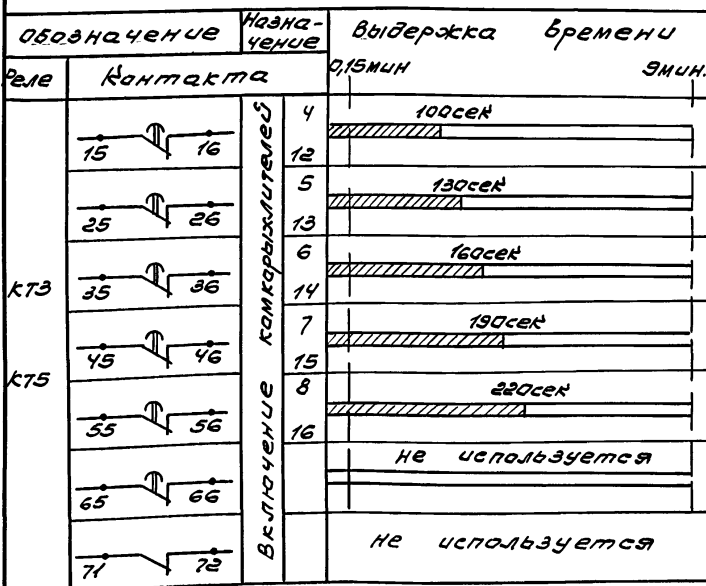 Обозначение
Назна-
чение
Выдержка времени
Реле
Контакта
0,15мин
9мин.
КТ3
КТ5
Включение комкорыхлителей
15 16
4
12
100сек
25 26
5
13
130сек
35 36
6
14
160сек
45 46
7
15
190сек
55 56
8
16
220сек
65 66
не используется
71 72
не используется